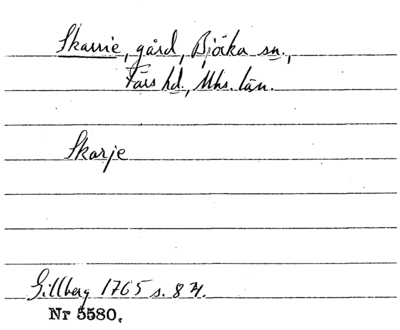 Skarrie, gård, Björka sn.,
Färs hd., Mhs. län.
Skarje
Gillberg 1765 s. 84.
Nr 5580.